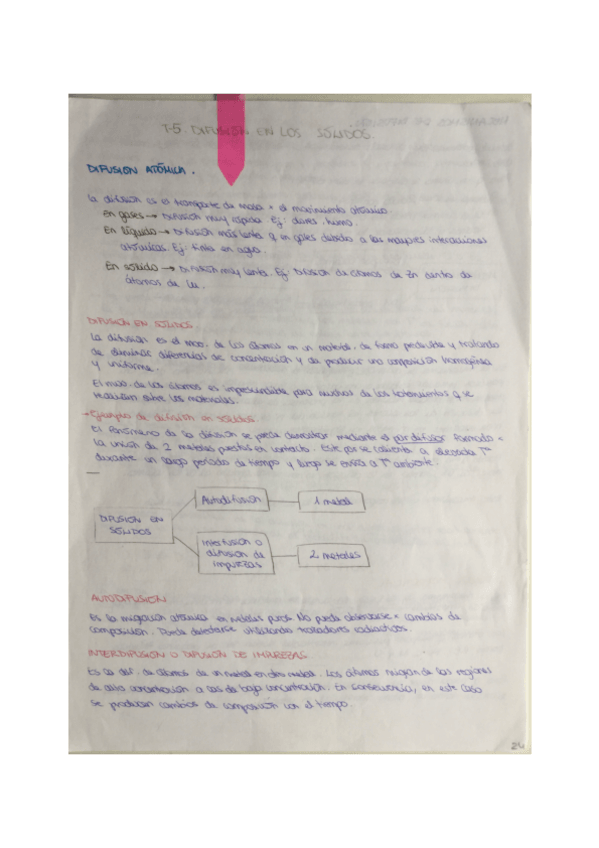 T-5. DIFUSIÓN EN LOS SÓLIDOS.
DIFUSION ATÓMICA.
La difusión es el transporte de masa x el movimiento atómico.
En gases → Difusión muy rápida Ej: olores, humo.
En líquido → Difusión más lenta q en gases debido a las mayores interacciones
atómicas. Ej: tinta en agua.
En sólido → Difusión muy lenta. Ej: Difusión de átomos de Zn dentro de
átomos de Cu.
DIFUSIÓN EN SÓLIDOS.
La difusión es el mov. de los átomos en un material. de forma predecible y tratando
de eliminar diferencias de concentración y de producir una composición homogénea
y uniforme.
El mov. de los átomos es imprescindible para muchos de los tratamientos q se
realizan sobre los materiales.
→ Ejemplo de difusión en sólidos
El fenómeno de la difusión se puede demostrar mediante el par difusor formado x
la unión de 2 metales puestos en contacto. Este par se calienta a elevada Tª
durante un largo periodo de tiempo y luego se enfría a Tª ambiente.
Autodifusión
1 metal
DIFUSION EN
SÓLIDOS
Interfusión o
difusión de
impurezas
2 metales
AUTODIFUSION
Es la migración atómica en metales puros. No puede observarse x cambios de
composición. Puede detectarse utilizando trazadores radiactivos.
INTERDIFUSION O DIFUSION DE IMPUREZAS.
Es la dif. de átomos de un metal en otro metal. Los átomos migran de las regiones
de alta concentración a las de baja concentración. En consecuencia, en este caso
se producen cambios de composición con el tiempo.
24